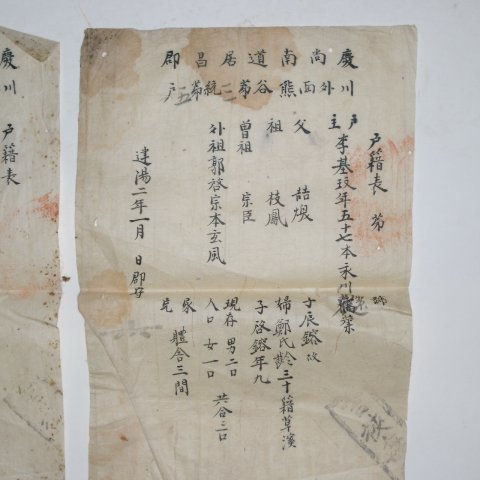 戶籍表 第 號
慶尚南道居昌郡
川外面熊谷第二統第五戶
戶主 李基玟年五十七本永川職業
父 喆煥
祖 枝鳳
曾祖 宗臣
外祖郭啓宗本玄風
子辰鎔故
婦鄭氏齡三十籍草溪
子啓鎔年九
現存 男二口
人口 女一口 共合三口
家宅 體合三間
建陽二年一月 日郡守
慶
川
戶籍表